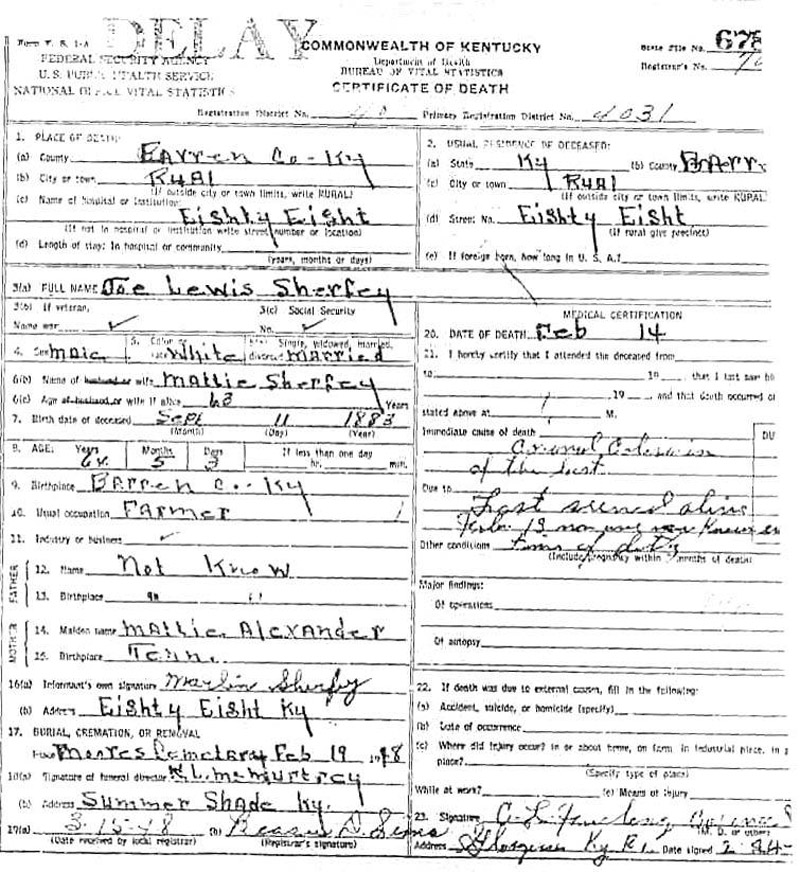 DELAY
Form V. S. 1-A
FEDERAL SECURITY AGENCY
U. S. PUBLIC HEALTH SERVICE
NATIONAL OFFICE VITAL STATISTICS
COMMONWEALTH OF KENTUCKY
Department of Health
BUREAU OF VITAL STATISTICS
CERTIFICATE OF DEATH
State File No. 678
Registrar's No.
Registration District No. Primary Registration District No. 4031
1. PLACE OF DEATH:
(a) County Barren Co-Ky
(b) City or town Rual
(If outside city or town limits, write RURAL)
(c) Name of hospital or institution:
Eishty Eisht
(If not in hospital or institution write street number or location)
(d) Length of stay: In hospital or community
(years, months or days)
2. USUAL RESIDENCE OF DECEASED:
(a) State Ky (b) County Barr
(c) City or town Rual
(If outside city or town limits, write RURAL
(d) Street No. Eishty Eisht
(If rural give precinct)
(e) If foreign born, how long in U. S. A.?
3(a) FULL NAME Joe Lewis Sherfey
3(b) If veteran,
Name war
3(c) Social Security
No.
4. Sex Male 5. Color or race White 6(a) Single, widowed, married, divorced Married
6(b) Name of husband or wife Mattie Sherfey
6(c) Age of husband or wife if alive 63 Years
7. Birth date of deceased Sept 11 1883
(Month) (Day) (Year)
8. AGE: Years 64 Months 5 Days 3 If less than one day
hr. min.
9. Birthplace Barren Co-Ky
10. Usual occupation Farmer
11. Industry or business
FATHER
12. Name Not Know
13. Birthplace " "
MOTHER
14. Maiden name Mattie Alexander
15. Birthplace Tenn.
16(a) Informant's own signature Marlin Sherfey
(b) Address Eishty Eisht Ky
17. BURIAL, CREMATION, OR REMOVAL
Place Mores Cemetary Feb 19 1948
18(a) Signature of funeral director McMurtrey
(b) Address Summer Shade Ky.
19(a) 3-15-48 (b)
(Date received by local registrar) (Registrar's signature)
MEDICAL CERTIFICATION
20. DATE OF DEATH Feb 14
21. I hereby certify that I attended the deceased from
to 19 , that I last saw h
19 and that death occurred o
stated above at M.
Immediate cause of death DU
of the
Due to
Last
Feb 13
Other conditions time of
(Include pregnancy within 3 months of death)
Major findings:
Of operations
Of autopsy
22. If death was due to external causes, fill in the following:
(a) Accident, suicide, or homicide (specify)
(b) Date of occurrence
(c) Where did injury occur? in or about home, on farm, in industrial place, in
place?
(Specify type of place)
While at work? (e) Means of Injury
23. Signature
(M. D. or other)
Address Ky R1. Date signed 2